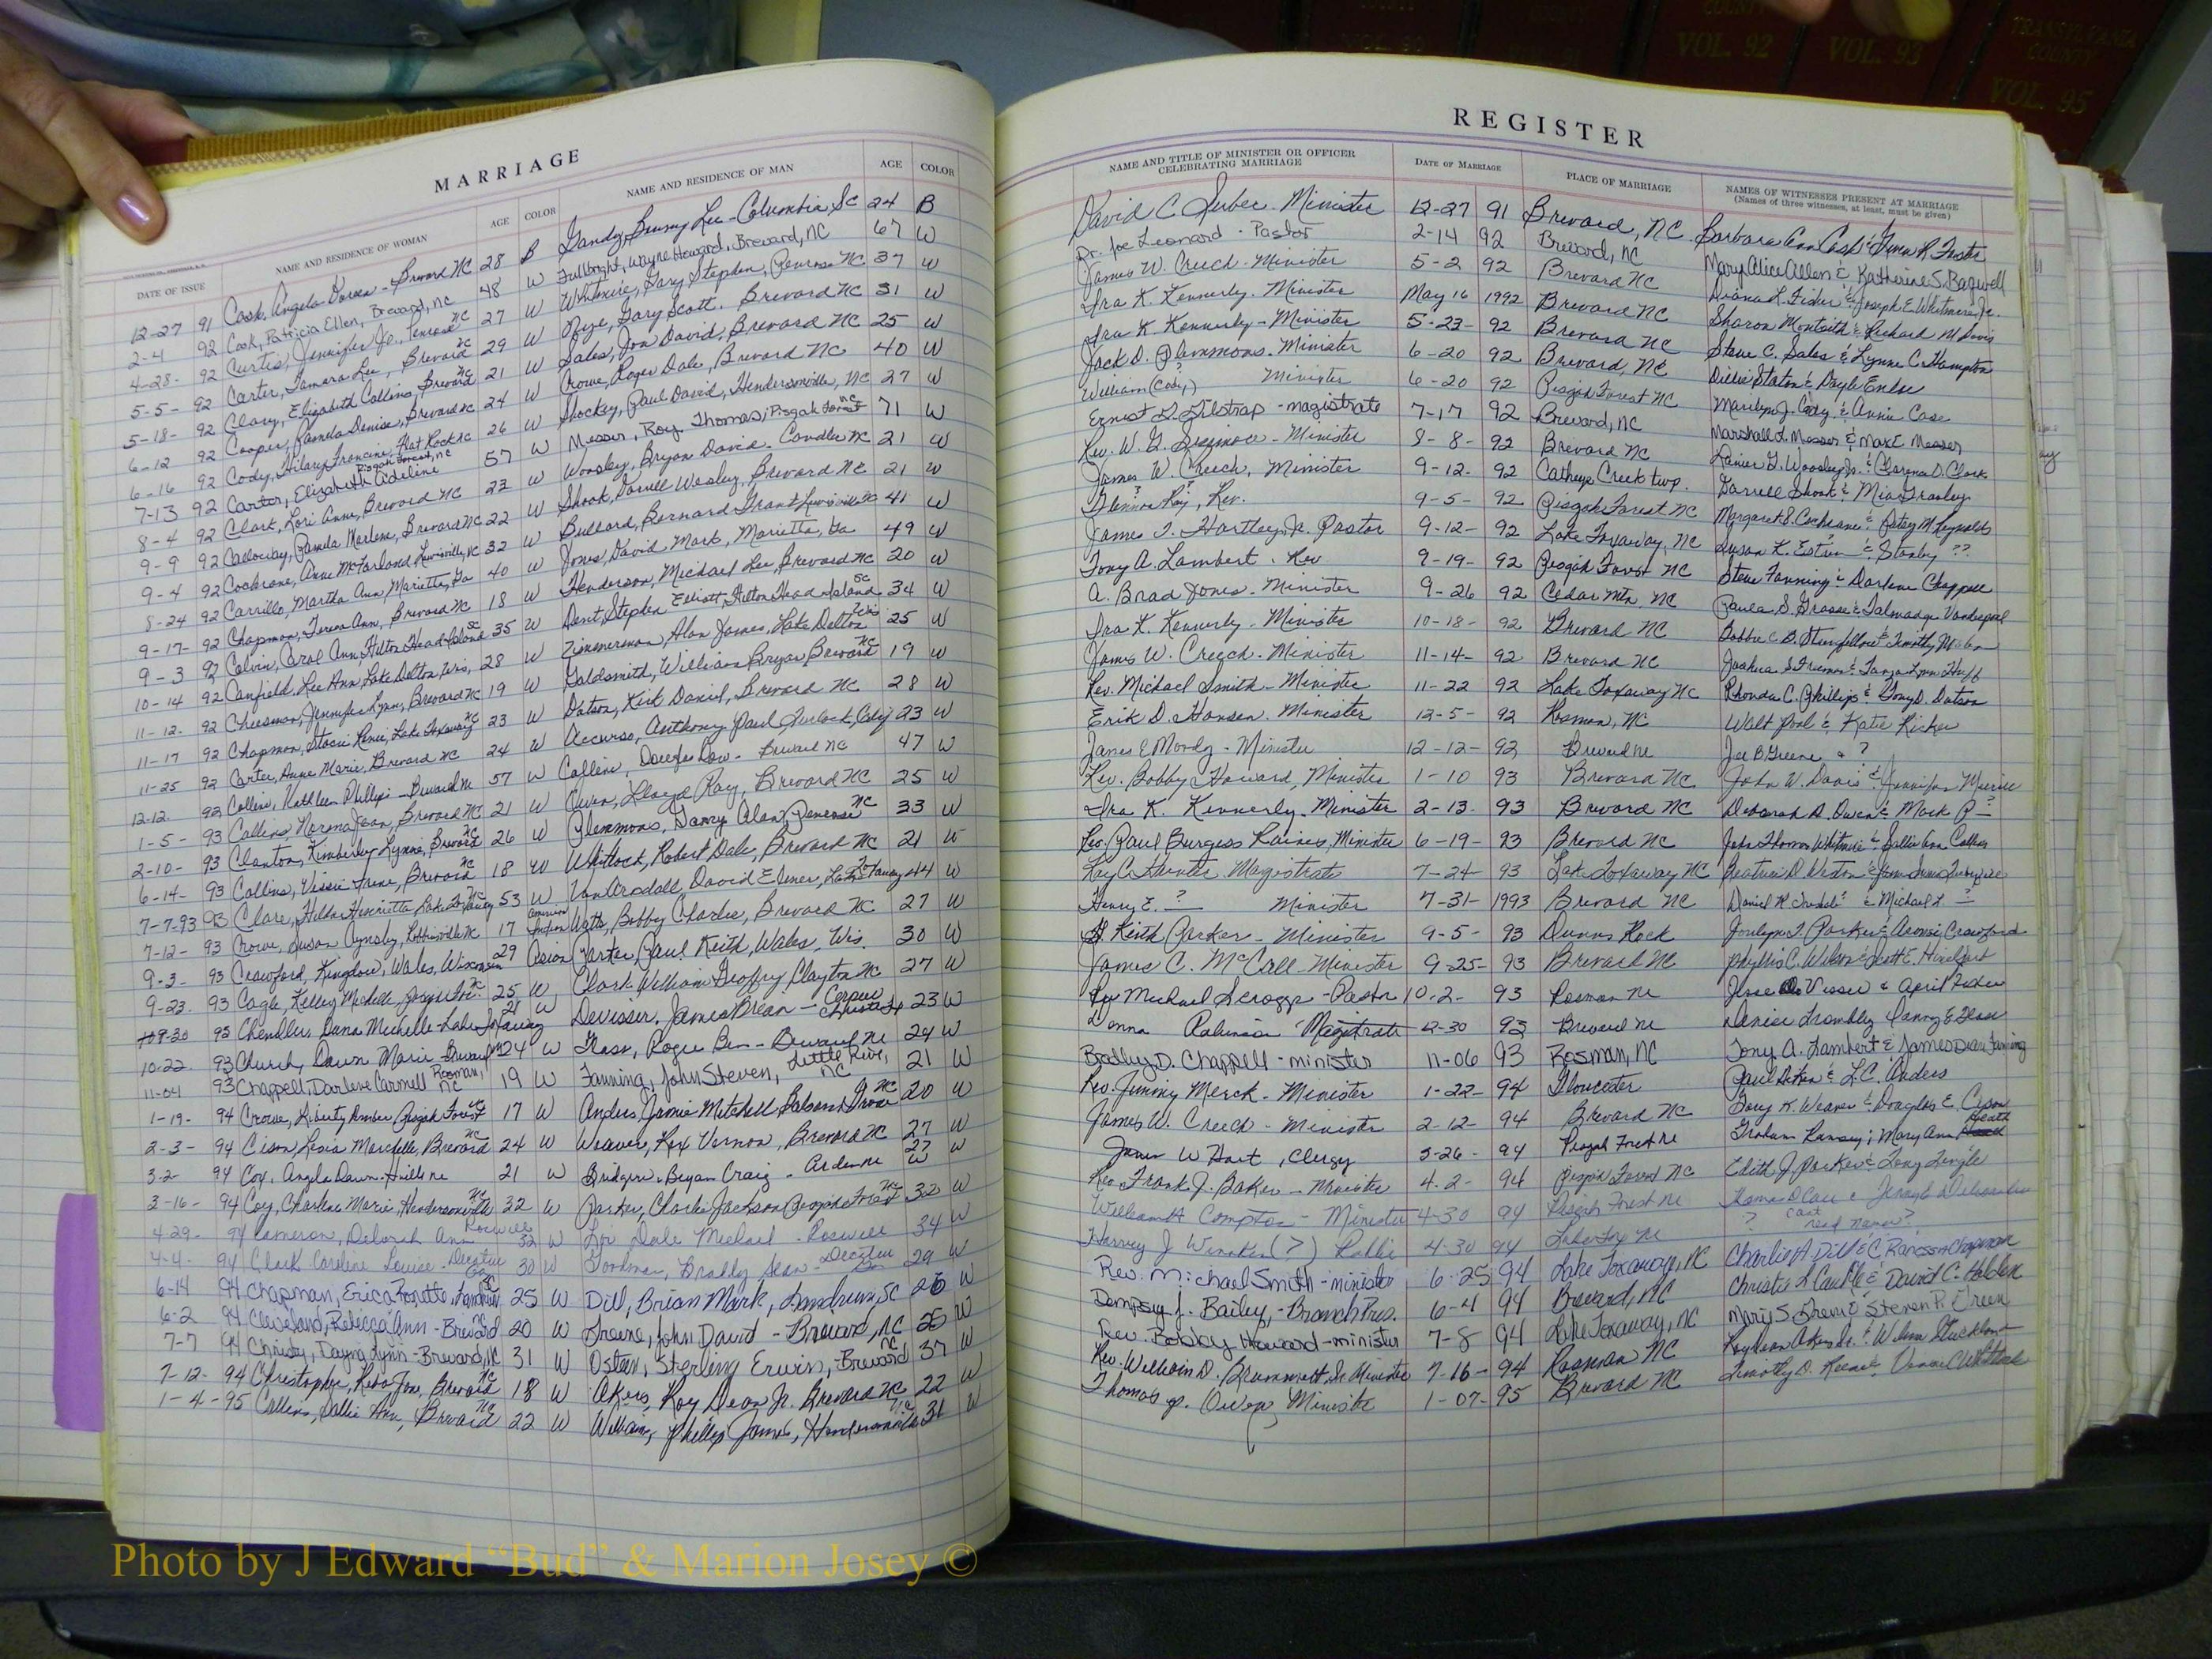 VOL. 92
VOL. 93
TRANSYLVANIA
COUNTY
VOL. 95
MARRIAGE
DATE OF ISSUE NAME AND RESIDENCE OF WOMAN AGE COLOR NAME AND RESIDENCE OF MAN AGE COLOR
12-27 91 Cash, Angela Brevard NC 28 B Gandy, Lee - Columbia, SC 24 B
2-4 92 Cash, Patricia Ellen, Brevard, NC 48 W Fullbright, Wayne Howard, Brevard, NC 67 W
4-28- 92 Curtis, Jennifer Jo, Penrose NC 27 W Whitmire, Gary Stephen, Penrose NC 37 W
5-5- 92 Carter, Tamara Lee, Brevard NC 29 W Nye, Gary Scott. Brevard NC 31 W
5-18- 92 Clary, Elizabeth Collins, Brevard NC 21 W Sales, Jon David, Brevard NC 25 W
6-12 92 Cooper, Pamela Denise, Brevard NC 24 W Crowe, Roger Dale, Brevard NC 40 W
6-16 92 Cody, Hilary Francine, Flat Rock NC 26 W Shockey, Paul David, Hendersonville, NC 27 W
7-13 92 Carter, Elizabeth Adeline Pisgah Forest, NC 57 W Messer, Roy Thomas, Pisgah Forest NC 71 W
8-4 92 Clark, Lori Anne, Brevard NC 22 W Woosley, Bryan David - Candler NC 21 W
9-9 92 Calloway, Pamela Marlene, Brevard NC 22 W Shook, Darrell Wesley, Brevard NC 21 W
9-4 92 Cochrane, Anne McFarland Lewisville, NC 32 W Bullard, Barnard Grant Lewisville NC 41 W
8-24 92 Carrillo, Martha Ann Marietta, Ga 40 W Jones, David Mark, Marietta, Ga 49 W
9-17- 92 Chapman, Teresa Ann, Brevard NC 18 W Henderson, Michael Lee, Brevard NC 20 W
9-3 92 Calvin, Carol Ann, Hilton Head Island SC 35 W Dent, Stephen Elliott, Hilton Head Island SC 34 W
10-14 92 Canfield, Lee Ann, Lake Delton, Wis, 28 W Zimmerman, Alan James, Lake Delton Wis 25 W
11-12- 92 Cheesman, Jennifer Lynn, Brevard NC 19 W Goldsmith, William Bryan Brevard NC 19 W
11-17 92 Chapman, Stacie Renee, Lake Toxaway NC 23 W Dotson, Kirk Daniel, Brevard NC 28 W
11-25 92 Carter, Anne Marie, Brevard NC 24 W Accurso, Anthony Paul 23 W
12-12- 92 Collins, Kathleen Phillips - Brevard NC 57 W Collins, Douglas - Brevard NC 47 W
1-5- 93 Collins Norma Jean, Brevard NC 21 W Owen, Lloyd Ray, Brevard NC 25 W
2-10- 93 Clanton, Kimberley Lynne, Brevard NC 26 W Plemmons, Danny Alan, Penrose NC 33 W
6-14- 93 Collins, Irene, Brevard NC 18 W Whitlock, Robert Dale, Brevard NC 21 W
7-7-93 93 Clare, Hilda Henrietta Lake Toxaway 53 W VanArsdall, David Elmer, Lake Toxaway 44 W
7-12- 93 Crowe, Susan Robbinsville NC 17 American Indian Watts, Bobby Charles, Brevard NC 27 W
9-3- 93 Crawford, Kingdow, Wales, Wisconsin 29 Asian Carter, Paul Keith, Wales, Wis. 30 W
9-23- 93 Cagle, Kelley Michelle, 25 W Clark, William Geoffrey Clayton NC 27 W
9-30 93 Chandler, Dana Michelle - Lake Toxaway 21 W DeVisser, James Brian - Corpus Christi Tx 23 W
10-22 93 Church, Dawn Marie - Brevard NC 24 W Roger - Brevard NC 24 W
11-04 93 Chappell, Darlene Carmell Rosman, NC 19 W Fanning, John Steven, Little River, NC 21 W
1-19- 94 Crowe, Amber Pisgah Forest NC 17 W Anders, Jamie Mitchell Balsam Grove NC 20 W
2-3- 94 Cison, Marchelle, Brevard NC 24 W Weaver, Rex Vernon, Brevard NC 27 W
3-2- 94 Cox, Angela Dawn 21 W Bridgers, Bryan Craig - Arden NC 27 W
3-16- 94 Coy, Charlene Marie, Hendersonville NC 32 W Parker, Charles Jackson Pisgah Forest NC 32 W
4-29- 94 Cameron, Deborah Ann Roswell 32 W Dale Michael - Roswell 34 W
4-4- 94 Clark Caroline Louise - Decatur Ga 30 W Goodman, Bradley Sean - Decatur Ga 29 W
6-14 94 Chapman, Erica Rosette, Landrum SC 25 W Dill, Brian Mark, Landrum, SC 26 W
6-2 94 Cleveland, Rebecca Ann - Brevard NC 20 W Greene, John David - Brevard, NC 25 W
7-7 94 Christy, Dayna Lynn - Brevard, NC 31 W Osteen, Sterling Erwin, - Brevard NC 37 W
7-12- 94 Christopher, Reba Jane, Brevard NC 18 W Akers, Roy Dean Jr. Brevard NC 22 W
1-4-95 Collins, Sallie Ann, Brevard NC 22 W Williams, Phillip James, Hendersonville NC 31 W
REGISTER
NAME AND TITLE OF MINISTER OR OFFICER CELEBRATING MARRIAGE DATE OF MARRIAGE PLACE OF MARRIAGE NAMES OF WITNESSES PRESENT AT MARRIAGE
(Names of three witnesses, at least, must be given)
David C. Minister 12-27 91 Brevard, NC. Barbara Ann Cash & R. Foster
Dr. Joe Leonard - Pastor 2-14 92 Brevard, NC Mary Alice Allen & Katherine S. Bagwell
James W. Creech - Minister 5-2 92 Brevard NC Diana L. Fisher & Joseph E. Whitmire, Jr.
Ira K. Kennerly. Minister May 16 1992 Brevard NC Sharon Monteith & Richard M Davis
Ira K Kennerly - Minister 5-23- 92 Brevard NC Steve C. Sales & Lynne C. Hampton
Jack D. Plemmons. Minister 6-20 92 Brevard, NC Dillie Staton & Doyle
William (Cody,) Minister 6-20 92 Pisgah Forest NC Marilyn J. Cody & Annie Case
Ernest D. Gilstrap - magistrate 7-17 92 Brevard, NC Marshall L. Messer & Messer
Rev. W. G. Minister 8-8- 92 Brevard NC Lanier G. Woosley Jr. & Clarence D. Clark
James W. Creech, Minister 9-12- 92 Catheys Creek twp. Darrell Shook & Mia
Rev. 9-5- 92 Pisgah Forest NC Margaret S. Cochrane & Patsy M Reynolds
James T. Hartley, Jr. Pastor 9-12- 92 Lake Toxaway, NC Susan K. & Stanley ??
Tony A. Lambert. Rev 9-19- 92 Pisgah Forest NC Steve Fanning & Darlene Chappell
A. Brad Jones - Minister 9-26 92 Cedar Mtn, NC Paula S. & Talmadge
Ira K. Kennerly - Minister 10-18- 92 Brevard NC Bobbie C. B. & Timothy
James W. Creech - Minister 11-14- 92 Brevard NC Joshua S. & Tanya Lynn Huff
Rev. Michael Smith - Minister 11-22 92 Lake Toxaway NC Rhonda C. Phillips & Tony D. Dotson
Erik D. Hansen. Minister 12-5- 92 Rosman, NC Walt Pool & Katie
James E Moody - Minister 12-12- 92 Brevard NC Joe B Greene & ?
Rev. Bobby Howard, Minister 1-10 93 Brevard NC John W. Davis & Jennifer
Ira K. Kennerly - Minister 2-13- 93 Brevard NC Deborah D. Owen & Mack P— ?
Rev. Paul Burgess Raines, Minister 6-19- 93 Brevard NC John Thomas Whitmire & Sallie Ann Collins
Kay C Hunter Magistrate 7-24- 93 Lake Toxaway NC Beatrice D.
Henry E. ? Minister 7-31- 1993 Brevard NC Daniel R. & Michael L ?
Keith Parker - Minister 9-5- 93 Dunns Rock Joulyn T. Parker & Crawford
James C. McCall - Minister 9-25- 93 Brevard NC Phyllis C. Wilson & Scott E.
Rev Michael Scroggs - Pastor 10-2- 93 Rosman NC Visser & April
Donna Robinson Magistrate 12-30 93 Brevard NC Denise Trombley
Bradley D. Chappell - minister 11-06 93 Rosman, NC Tony A. Lambert & James Dean Fanning
Rev. Jimmy Merck - Minister 1-22- 94 Gloucester Paul & L.C. Anders
James W. Creech - Minister 2-12- 94 Brevard NC Tony K. Weaver & Douglas E. Cison
James W Hart, Clergy 3-26- 94 Pisgah Forest NC Graham Ramsey; Mary Ann Heath
Rev Frank J. Baker - Minister 4-2- 94 Pisgah Forest NC Edith J. Parker &
William H Compton - Minister 4-30 94 Pisgah Forest NC
Harvey J (?) Rabbi 4-30 94 Lake Tox NC ? cant read names?
Rev. Michael Smith - minister 6-25 94 Lake Toxaway, NC Charlie A. Dill & C. Ransom Chapman
Dempsy J. Bailey, - Branch Pres. 6-4 94 Brevard, NC Christie L. & David C. Holden
Rev. Bobby Howard - minister 7-8 94 Lake Toxaway, NC Mary S. & Steven P. Green
Rev. William D. Brummett Sr Minister 7-16- 94 Rosman NC & Wilma
Thomas Owen Minister 1-07-95 Brevard NC Timothy D. & C Whitlock
Photo by J Edward “Bud” & Marion Josey ©